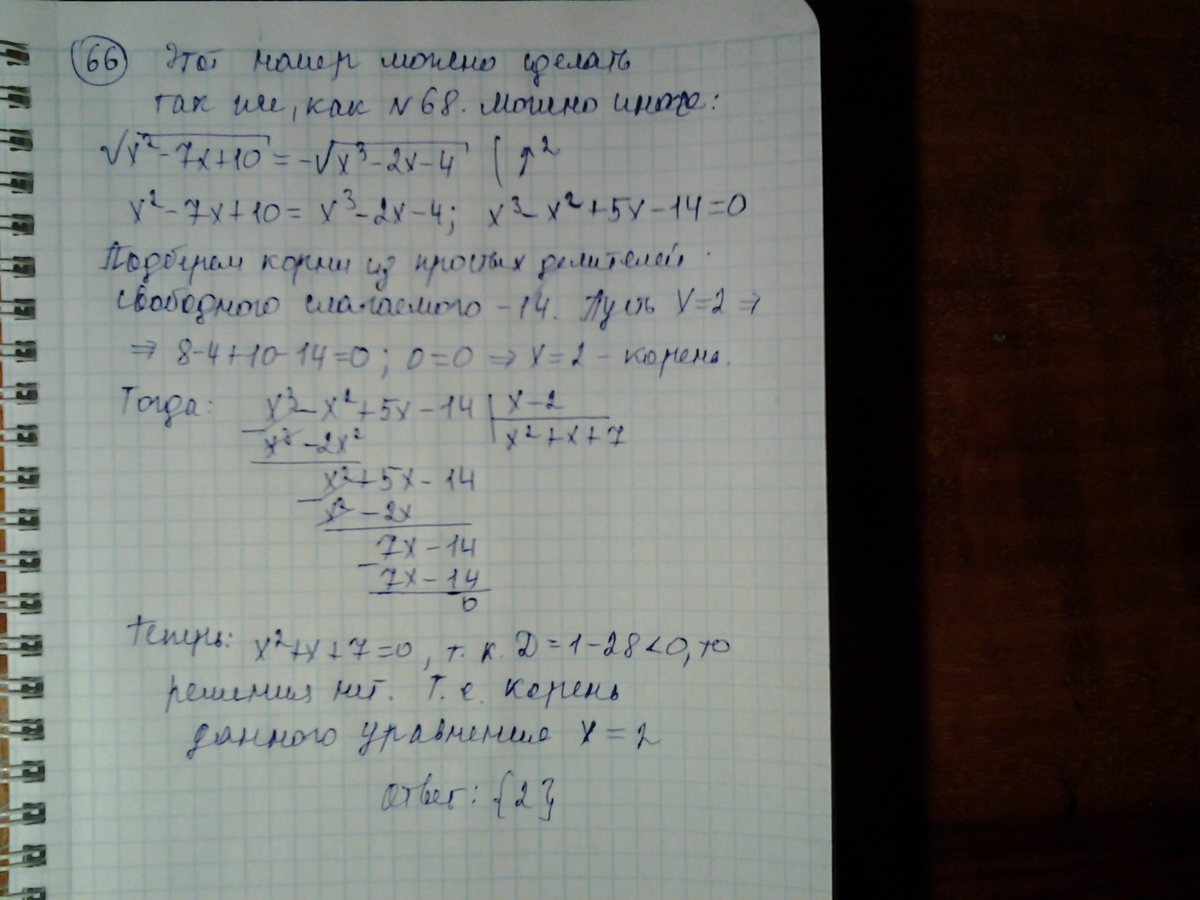 66 Этот номер можно сделать
так же, как №68. Можно иначе:
√x²-7x+10 = -√x³-2x-4 | ↑²
x²-7x+10 = x³-2x-4; x³-x²+5x-14=0
Подберем корни из простых делителей
свободного слагаемого -14. Пусть x=2 ⇒
⇒ 8-4+10-14=0; 0=0 ⇒ x=2 - корень.
Тогда: x³-x²+5x-14 | x-2
x³-2x² x²+x+7
x²+5x-14
x²-2x
7x-14
7x-14
0
Теперь: x²+x+7=0, т.к. D=1-28<0, то
решения нет. Т.е. корень
данного уравнения x=2
Ответ: {2}